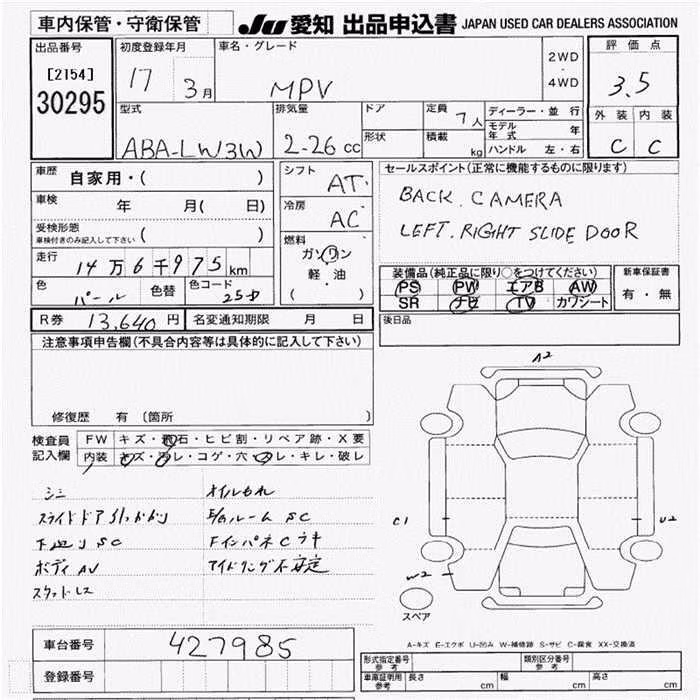 車内保管・守衛保管
JU 愛知 出品申込書 JAPAN USED CAR DEALERS ASSOCIATION
出品番号
[2154]
30295
初度登録年月
17 3月
車名・グレード
MPV
2WD
・
4WD
評価点
3.5
外装 内装
C C
型式
ABA-LW3W
排気量
2-26 cc
ドア
形状
定員
7人
積載
kg
ディーラー・並行
モデル年式 年
ハンドル 左・右
車歴 自家用・( )
車検 年 月( 日)
受検形態
車検付きのみ記入して下さい ( )
走行
14万6千975km
色 パール 色替 色コード 25D
シフト
AT
冷房
AC
燃料
ガソリン
軽・油
( )
セールスポイント(正常に機能するものに限ります)
BACK. CAMERA
LEFT. RIGHT SLIDE DOOR
装備品(純正品に限り○をつけてください)
PS PW エアB AW
SR ナビ TV カワシート
新車保証書
有・無
R券 13,640円 名変通知期限 月 日
後日品
注意事項申告欄(不具合内容等は具体的に記入して下さい)
修復歴 有 (箇所 )
検査員
記入欄
FW キズ・飛石・ヒビ割・リペア跡・X要
内装 キズ・汚レ・コゲ・穴・スレ・キレ・破レ
シミ
スライドドア引っかかり
下廻りSC
ボディAU
オイルもれ
E/gルームSC
FインパネCラキ
アイドリング不安定
A2
C1
U2
W2
スペア
A-キズ E-エクボ U-凹み W-補修跡 S-サビ C-腐食 XX-交換済
車台番号
427985
登録番号
形式指定番号
参考
類別区分番号
参考
車庫証明用
参考
長さ cm 幅 cm 高さ cm